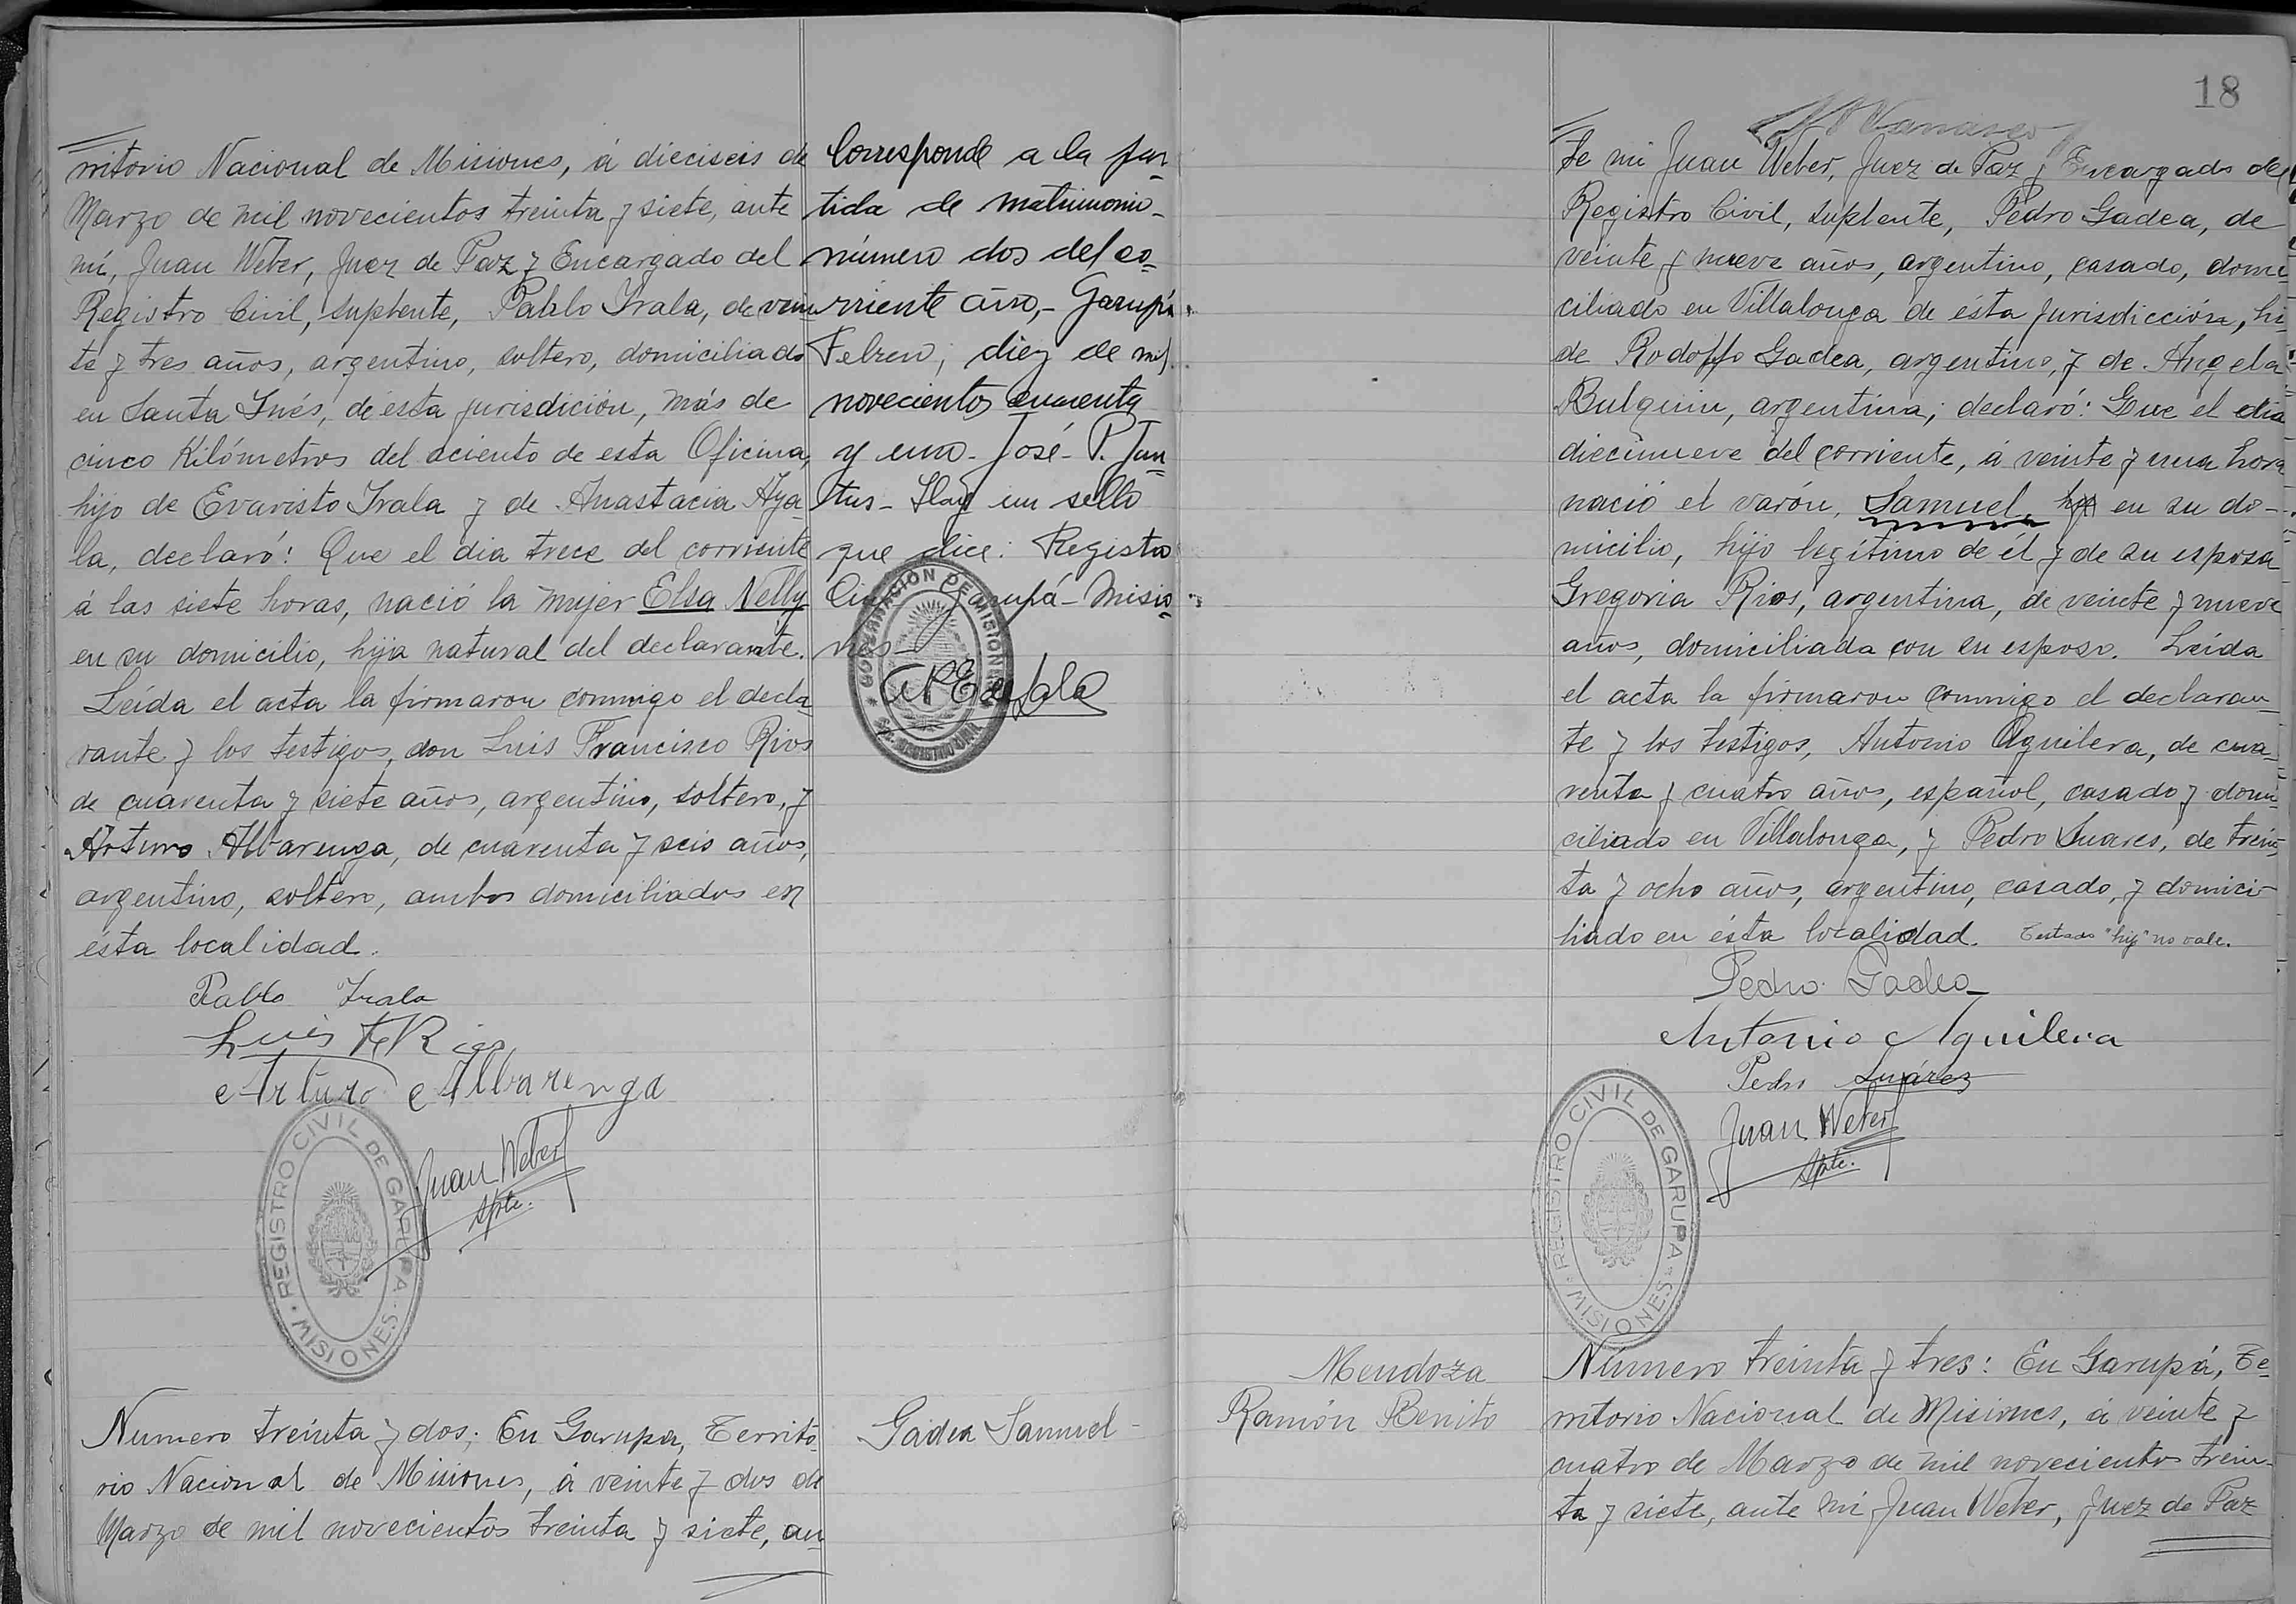 rritorio Nacional de Misiones, á dieciseis de
Marzo de mil novecientos treinta y siete, ante
mí, Juan Weber, Juez de Paz y Encargado del
Registro Civil, suplente, Pablo Irala, de vein
te y tres años, argentino, soltero, domiciliado
en Santa Inés, de ésta jurisdición, más de
cinco Kilómetros del aciento de esta Oficina,
hijo de Evaristo Irala y de Anastacia Aya-
la, declaró: Que el dia trece del corriente
á las siete horas, nació la mujer Elsa Nelly
en su domicilio, hija natural del declarante.
Leída el acta la firmaron conmigo el decla-
rante y los testigos, don Luis Francisco Rios
de cuarenta y siete años, argentino, soltero, y
Arturo Albarenga, de cuarenta y seis años,
argentino, soltero, ambos domiciliados en
ésta localidad.
Pablo Irala
Luis F. Rios
Arturo Albarenga
Juan Weber
splte.
REGISTRO CIVIL DE GARUPA
MISIONES
Corresponde a la par-
tida de matrimonio-
número dos del co-
rriente año,- Garupá
Febrero, diez de mil
novecientos cuarenta
y uno- José- P.
Hay un sello
que dice: Registro
Garupá- Misio
nes-
GOBERNACION DE MISIONES
Numero treinta y dos; En Garupa, Territo-
rio Nacional de Misiones, á veinte y dos de
Marzo de mil novecientos treinta y siete, an
Gadea Samuel-
18
te mi Juan Weber, Juez de Paz y Encargado del
Registro Civil, suplente, Pedro Gadea, de
veinte y nueve años, argentino, casado, domi
ciliado en Villalonga de ésta jurisdicción, hi
de Rodolfo Gadea, argentino, y de Angela
Bulquin, argentina; declaró: Que el dia
diecinueve del corriente, á veinte y una hora
nació el varón, Samuel, hijo en su do-
micilio, hijo legítimo de él y de su esposa
Gregoria Rios, argentina, de veinte y nueve
años, domiciliada con su esposo. Leída
el acta la firmaron conmigo el declaran-
te y los testigos, Antonio Aguilera, de cua-
renta y cuatro años, español, casado y domi-
ciliado en Villalonga, y Pedro Suares, de trein-
ta y ocho años, argentino, casado, y domici-
liado en ésta localidad. Testado "hijo" no vale.
Pedro Gadea
Antonio Aguilera
Pedro Suárez
Juan Weber
splte.
REGISTRO CIVIL DE GARUPA
MISIONES
Mendoza
Ramón Benito
Número treinta y tres: En Garupá, Te-
rritorio Nacional de Misiones, á veinte y
cuatro de Marzo de mil novecientos trein-
ta y siete, ante mí Juan Weber, Juez de Paz